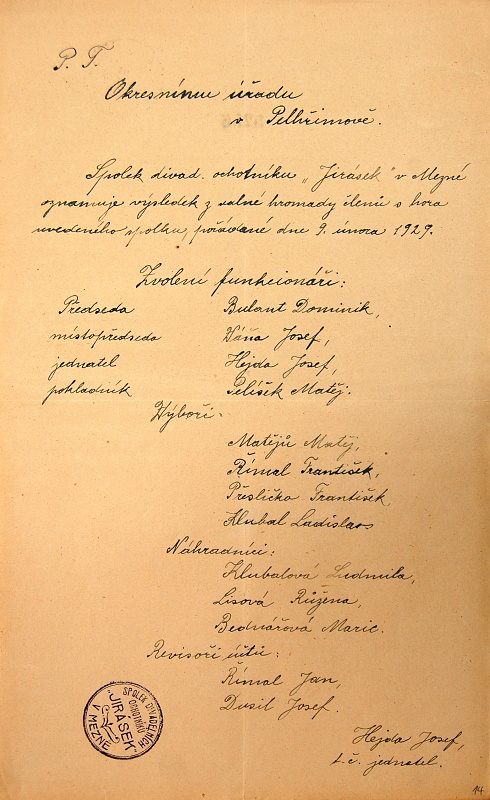 P. T.
Okresnímu úřadu
v Pelhřimově.
Spolek divad. ochotníku „Jirásek" v Mezné
oznamuje výsledek z valné hromady členů s hora
uvedeného spolku, pořádané dne 9. února 1929.
Zvolení funkcionáři:
Předseda Bulant Dominik,
místopředseda Váňa Josef,
jednatel Hejda Josef,
pokladník Pelíšek Matěj.
Výboři:
Matějů Matěj,
Římal František,
Přeslička František
Klubal Ladislav
Náhradníci:
Klubalová Ludmila,
Lisová Růžena,
Bednářová Marie.
Revisoři účtů:
Římal Jan,
Dusil Josef.
SPOLEK DIVADELNÍCH
OCHOTNÍKŮ
"JIRÁSEK"
V MEZNÉ
Hejda Josef,
t. č. jednatel.
14